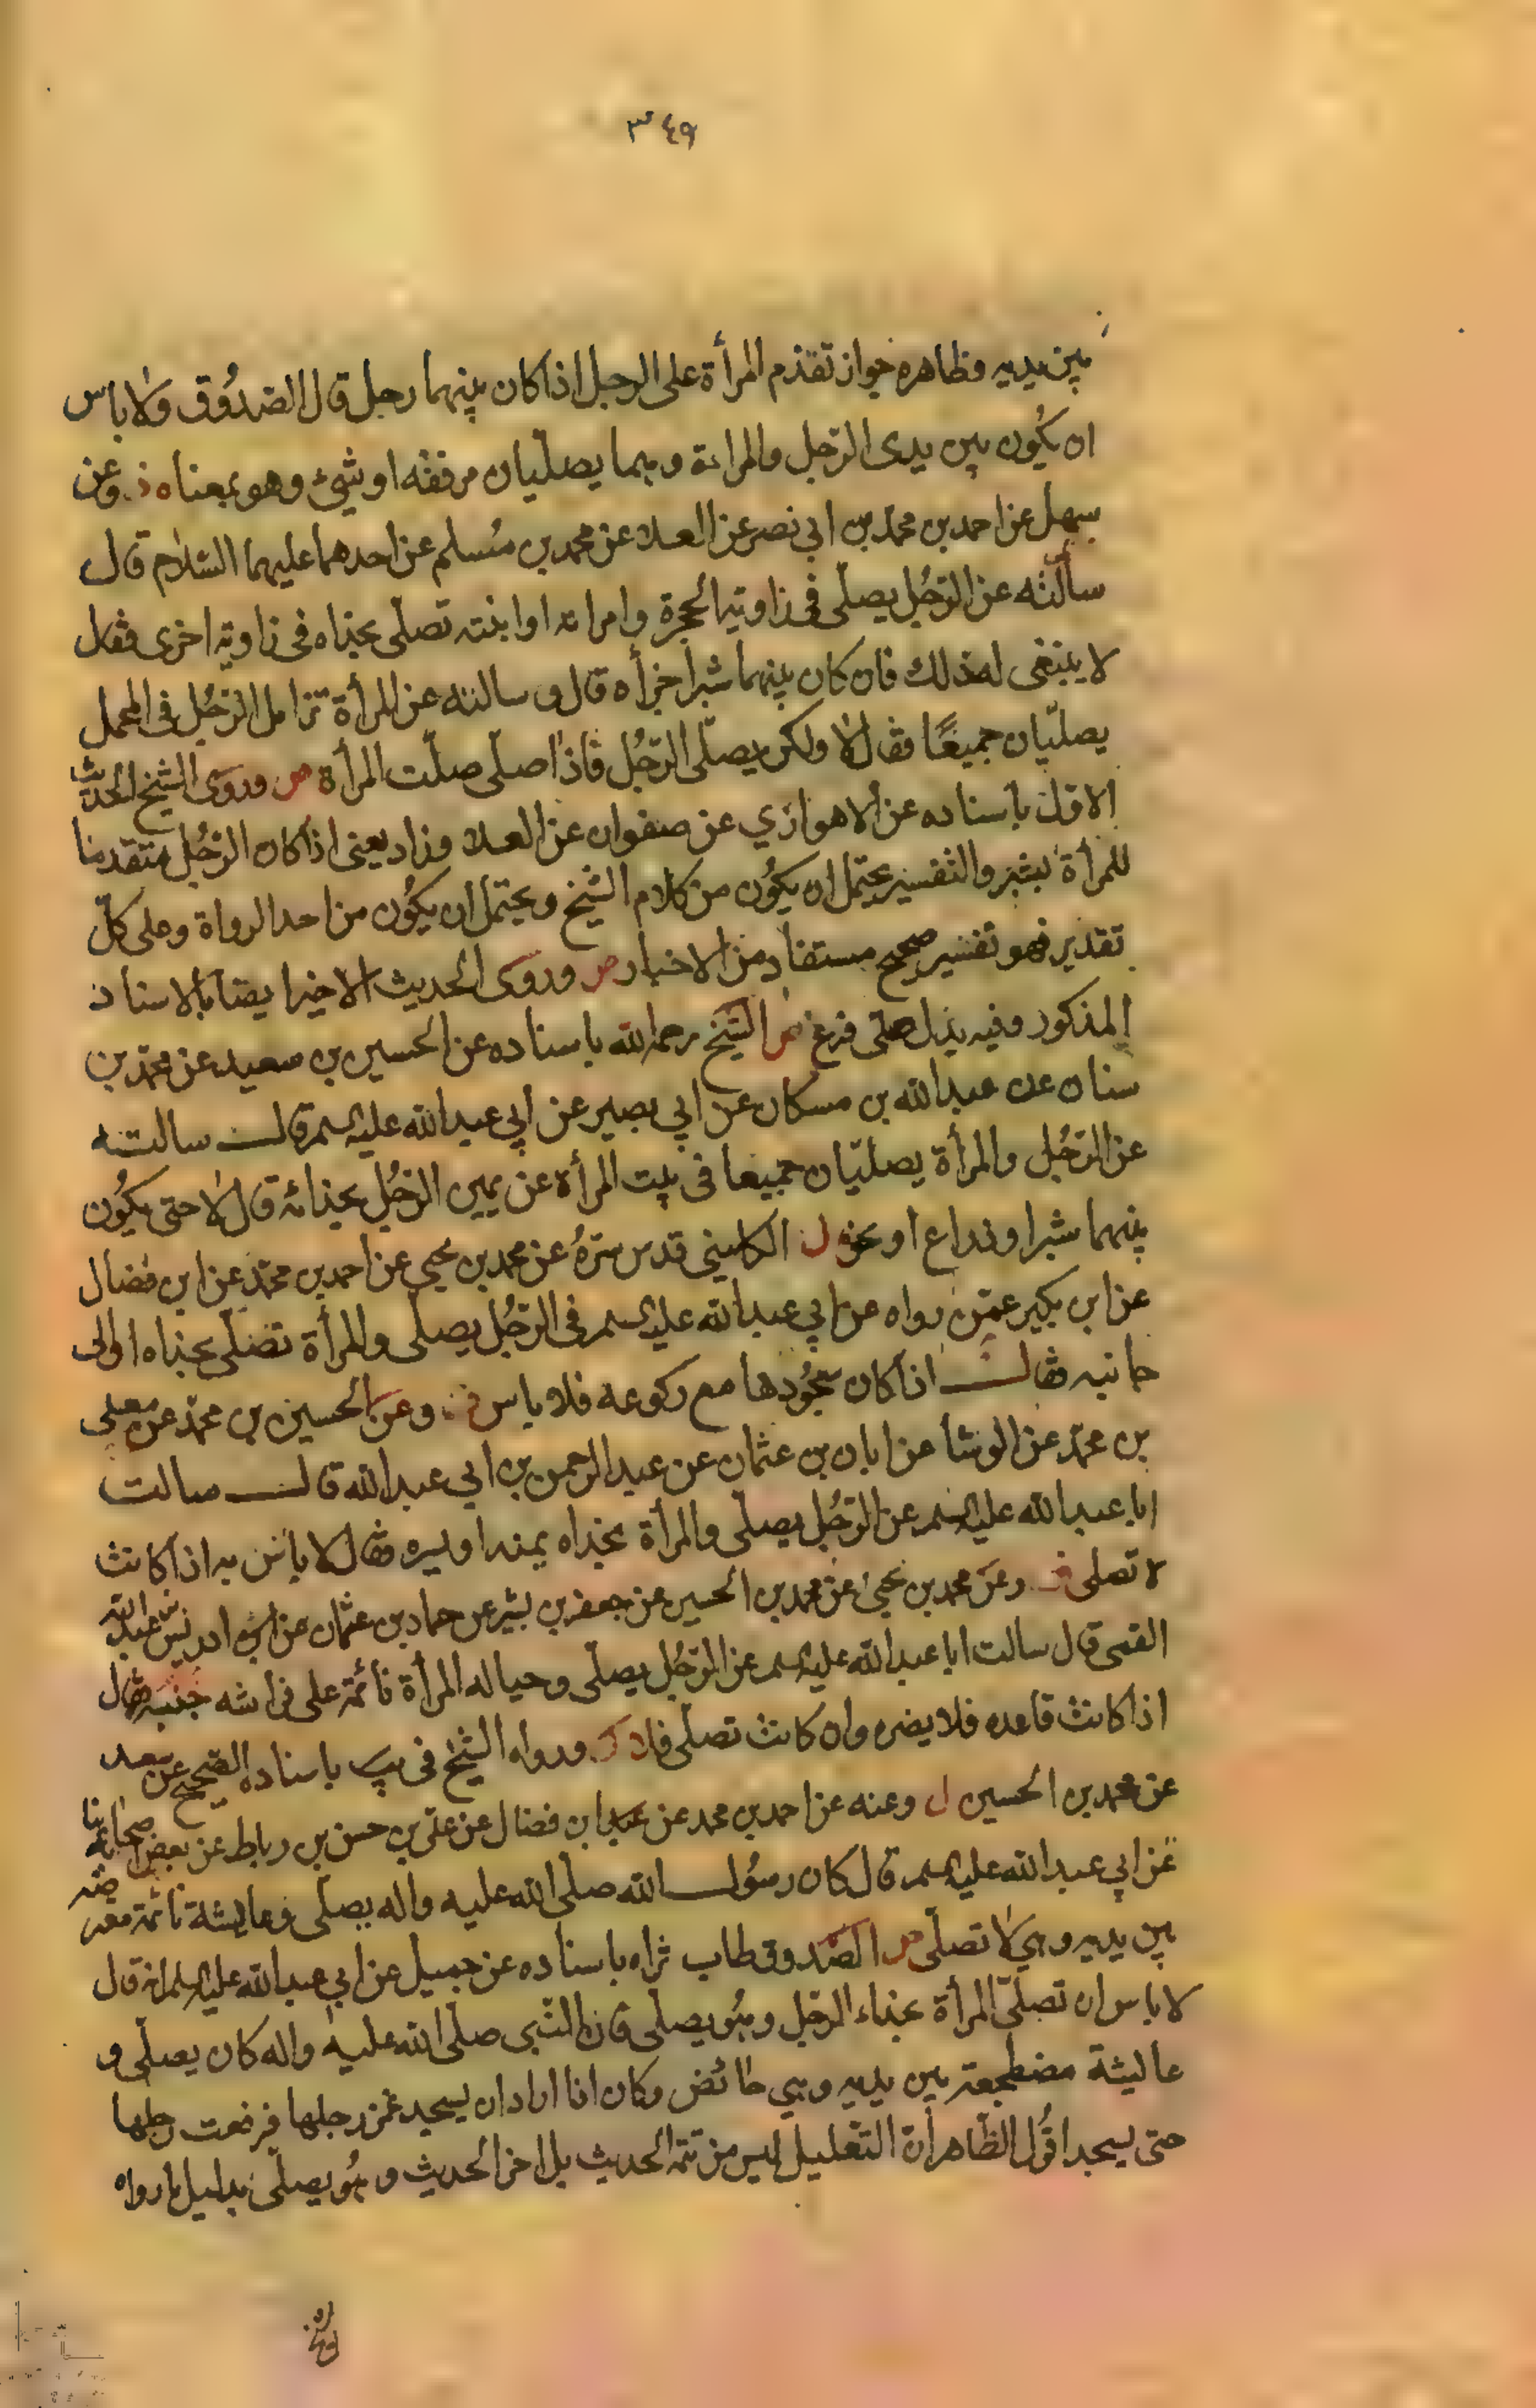 ٣٤٩
بين يديه وظاهره جواز تقدم المرأة على الرجل اذا كان بينهما رجل قال الصدُوق ولا باس
ان يكُون بين يدى الرّجل والمراءة وهما يصلّيان مرفقه او شئ وهو بمعناه وعن
سهل عن احمد بن محمّد بن ابي نصر عن العلا عن محمد بن مُسلم عن احدهما عليهما السّلام قال
سألته عن الرّجُل يصلّى فى زاوية الحجرة وامراته او ابنته تصلّى بحذاه فى زاوية اخرى فقال
لا ينبغى له ذلك فان كان بينهما شبرا جزأه قال و سالته عن المرأة تزامل الرّجُل فى المحمل
يصليّان جميعًا فقال لا ولكن يصلّى الرّجُل فاذا صلّى صلّت المرأة ص وروى الشيخ الحديث
الاول باسناده عن الاهوازي عن صفوان عن العلا وزاد يعنى اذا كان الرّجُل متقدما
للمرأة بشبر والتفسير يحتمل ان يكُون من كلام الشيخ ويحتمل ان يكُون من احد الرواة وعلى كلّ
تقدير فهو تفسير صحيح مستفاد من الاخبار ص وروى الحديث الاخير ايضا بالاسناد
المذكور وفيه بدل صلّى فرغ ص الشيخ رحمه الله باسناده عن الحسين بن سعيد عن محمّد بن
سنان عن عبدالله بن مسكان عن ابي بصير عن ابي عبدالله عليه السلم قال سالته
عن الرّجُل والمرأة يصليّان جميعا فى بيت المرأة عن يمين الرّجُل بحذائه قال لا حتى يكُون
بينهما شبرا وذراع او نحوه ل الكلينى قدس سرّهُ عن محمد بن يحيى عن احمد بن محمّد عن ابن فضال
عن ابن بكير عمّن رواه عن ابي عبدالله عليه السلم فى الرّجُل يصلّى والمرأة تصلّى بحذاه او الى
جانبه فقال اذا كان سجُودها مع ركوعه فلا باس وعن الحسين بن محمّد عن معلى
بن محمّد عن الوشا عن ابان بن عثمان عن عبد الرحمن بن ابي عبدالله قال سالت
ابا عبدالله عليه السلم عن الرّجُل يصلّى والمرأة بحذاه يمنه او يسره فقال لا باس به اذا كانت
لا تصلى وعن محمد بن يحيى عن محمد بن الحسين عن جعفر بن بشير عن حماد بن عثمان عن ادريس بن عبدالله
القمى قال سالت ابا عبدالله عليه السلم عن الرّجُل يصلّى وحياله المرأة نائمة على فراشه جنبه فقال
اذا كانت قاعده فلا يضره وان كانت تصلّى فلا ورواه الشيخ فى يب باسناده الصّحيح عن سعد
عن محمد بن الحسين ل وعنه عن احمد بن محمد عن ابن فضال عن على بن حسن بن رباط عن بعض اصحابنا
عن ابي عبدالله عليه السلم قال كان رسُول الله صلّى الله عليه واله يصلّى وعايشة نائمة معترضه
بين يديه وهي لا تصلّى ص الصّدوق طاب ثراه باسناده عن جميل عن ابي عبدالله عليه السلم انه قال
لا باس ان تصلّى المرأة بحذاء الرّجل وهُو يصلّى فان النّبى صلّى الله عليه واله كان يصلّى و
عايشة مضطجعة بين يديه وهي حائض وكان اذا اراد ان يسجد غمز رجلها فرفعت رجلها
حتى يسجد اقُول الظّاهر أن التّعليل ليس من تتمة الحديث بل اخر الحديث وهُو يصلّى بدليل ما رواه